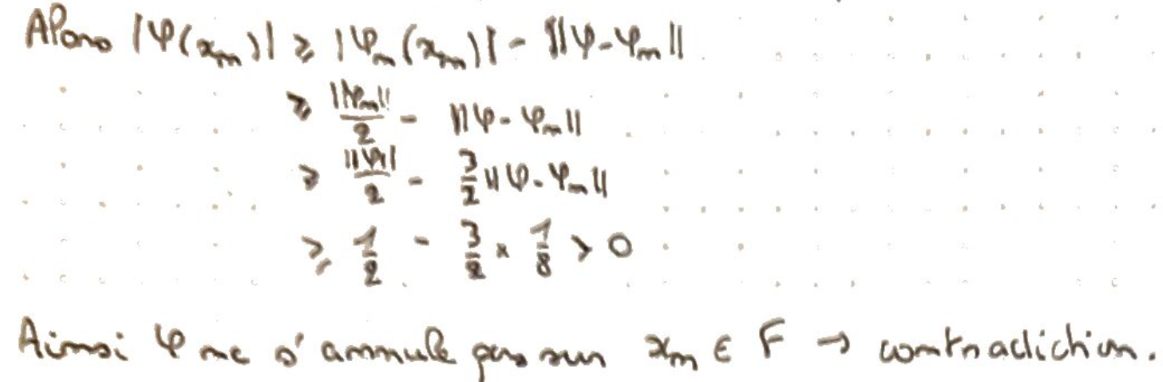 Alors |φ(x_m)| ≥ |φ_m(x_m)| - ||φ-φ_m||
≥ ||φ_m||/2 - ||φ-φ_m||
≥ ||φ||/2 - 3/2 ||φ-φ_m||
≥ 1/2 - 3/2 × 1/8 > 0
Ainsi φ ne s'annule pas sur x_m ∈ F → contradiction.